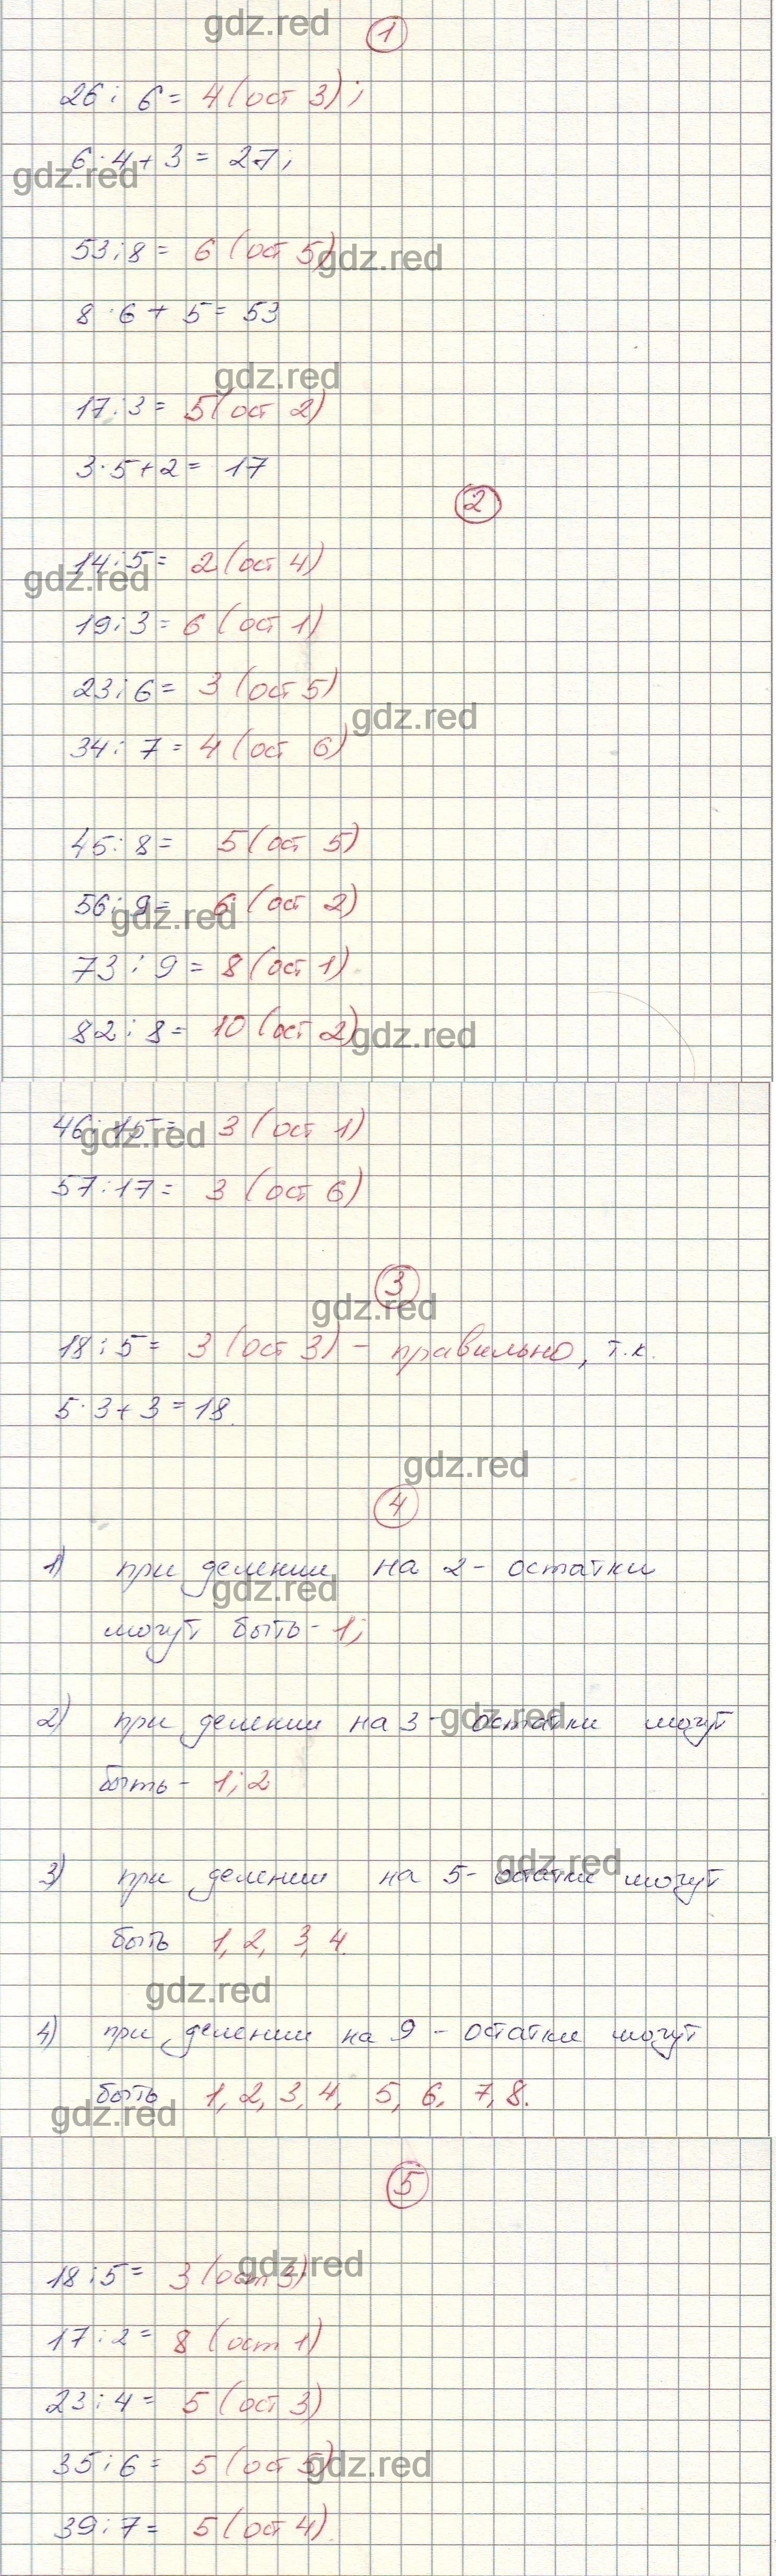 gdz.red
1
26 : 6 = 4 (ост 3);
6 · 4 + 3 = 27;
gdz.red
53 : 8 = 6 (ост 5)
gdz.red
8 · 6 + 5 = 53
gdz.red
17 : 3 = 5 (ост 2)
3 · 5 + 2 = 17
2
14 : 5 = 2 (ост 4)
gdz.red
19 : 3 = 6 (ост 1)
23 : 6 = 3 (ост 5)
gdz.red
34 : 7 = 4 (ост 6)
45 : 8 = 5 (ост 5)
56 : 9 = 6 (ост 2)
gdz.red
73 : 9 = 8 (ост 1)
82 : 8 = 10 (ост 2)
gdz.red
46 : 15 = 3 (ост 1)
gdz.red
57 : 17 = 3 (ост 6)
3
gdz.red
18 : 5 = 3 (ост 3) - правильно, т.к.
5 · 3 + 3 = 18.
gdz.red
4
1) при делении на 2 - остатки
gdz.red
могут быть - 1;
2) при делении на 3 - остатки могут
gdz.red
быть - 1; 2
3) при делении на 5 - остатки могут
gdz.red
быть 1, 2, 3, 4.
gdz.red
4) при делении на 9 - остатки могут
быть 1, 2, 3, 4, 5, 6, 7, 8.
gdz.red
5
18 : 5 = 3 (ост 3)
gdz.red
17 : 2 = 8 (ост 1)
23 : 4 = 5 (ост 3)
35 : 6 = 5 (ост 5)
gdz.red
39 : 7 = 5 (ост 4).